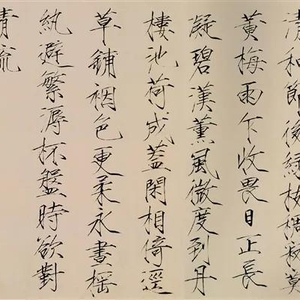 清和節後綠枝稠寂莫
黃梅雨乍收畏日正長
凝碧漢薰風微度到丹
樓池荷成蓋閑相倚逕
草鋪裀色更柔永晝搖
紈避繁溽杯盤時欲對
清流